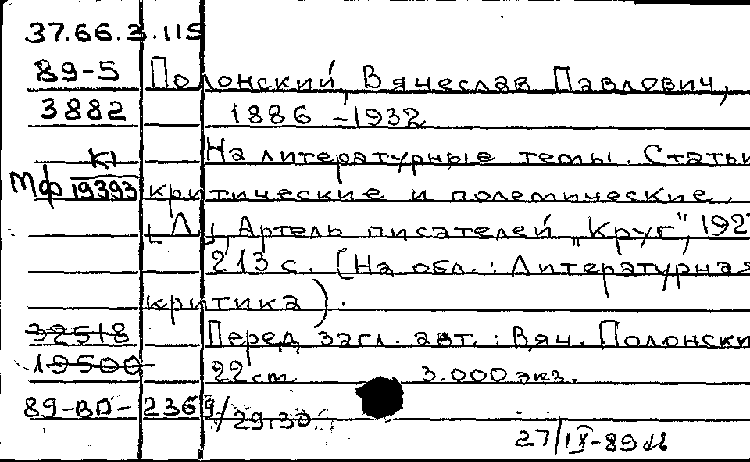 37.66.3.115
89-5 Полонский, Вячеслав Павлович,
3882 1886 -1932
На литературные темы. Статьи
К1
Мф 19393 критические и полемические.
[Л], Артель писателей "Круг", 192
213 с. (На обл.: Литературная
критика).
32518 Перед загл. авт.: Вяч. Полонски
19500 22 cm 3.000 экз.
89-ВО-2369/29.30
27/IX-89